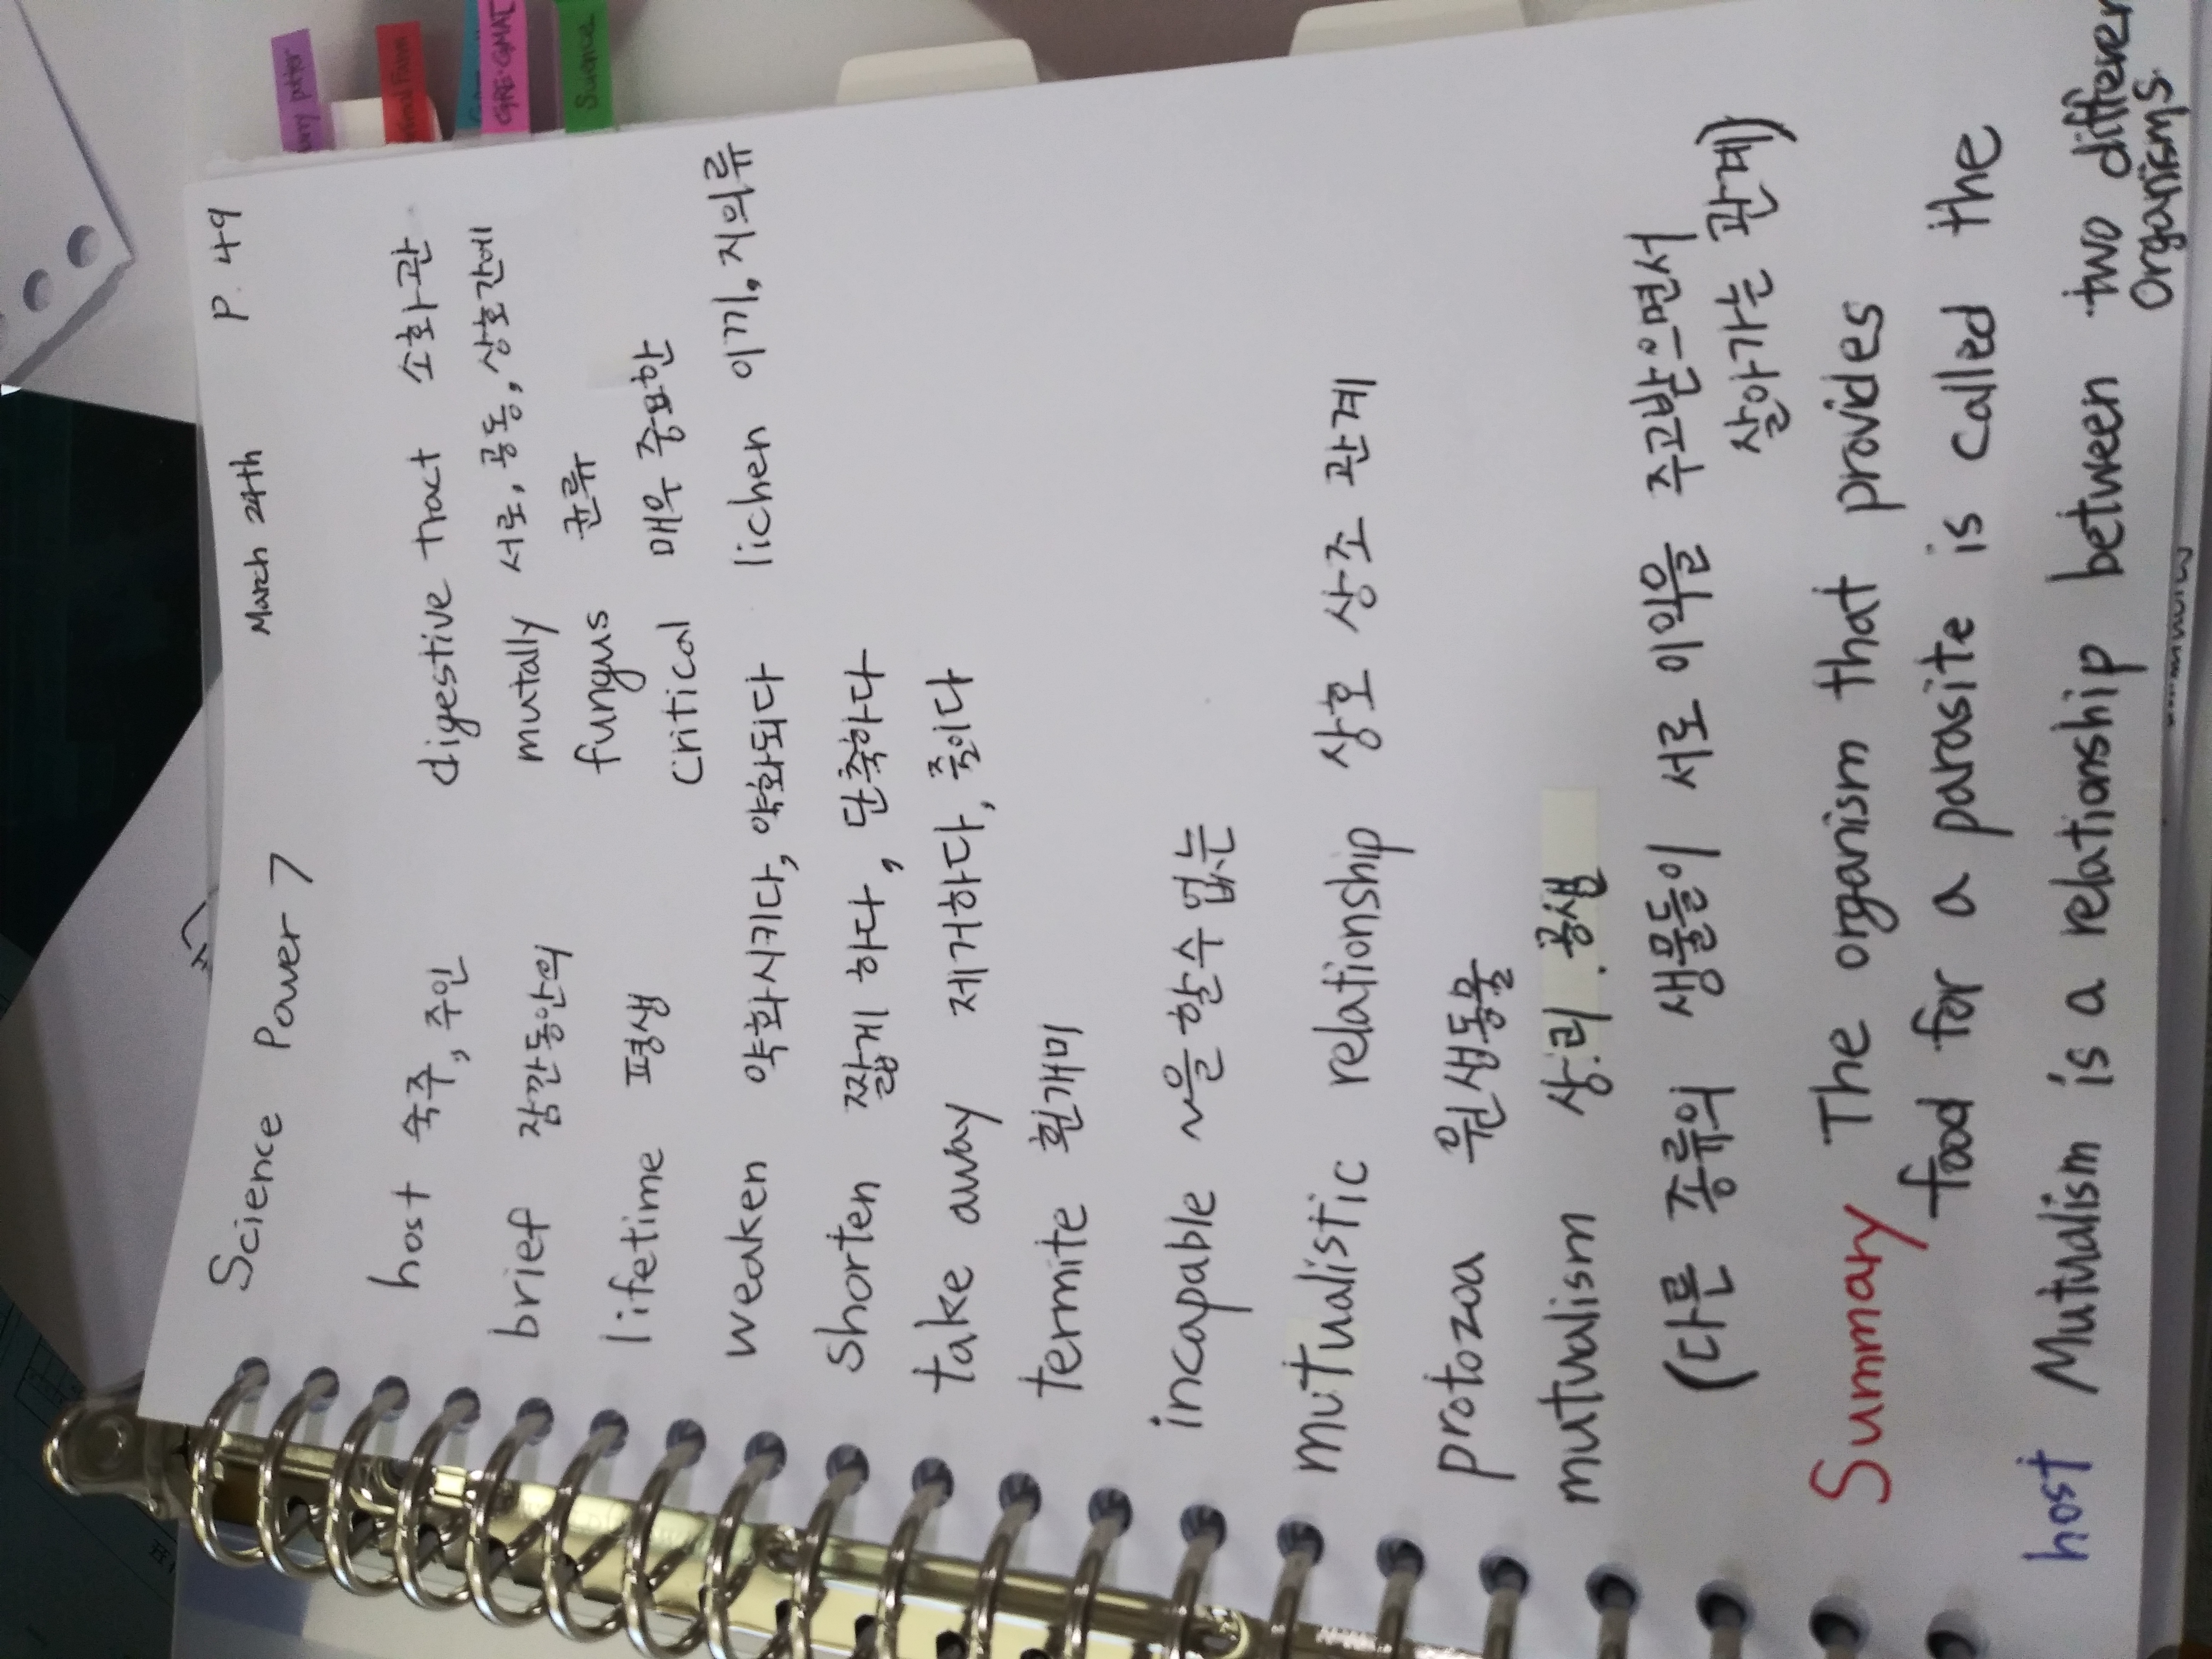 Potter
GRE·GMAT
Science
Science Power 7 March 24th P. 49
host 숙주, 주인
digestive tract 소화관
brief 잠깐동안의
mutally 서로, 공동, 상호간에
lifetime 평생
fungus 균류
critical 매우 중요한
weaken 약화시키다, 약화되다
lichen 이끼, 지의류
shorten 짧게 하다, 단축하다
take away 제거하다, 줄이다
termite 흰개미
incapable ~을 할 수 없는
mutualistic relationship 상호 상조 관계
protozoa 원생동물
mutualism 상리.공생
(다른 종류의 생물들이 서로 이익을 주고받으면서
살아가는 관계)
Summary The organism that provides
food for a parasite is called the
host Mutualism is a relationship between two different
organisms.